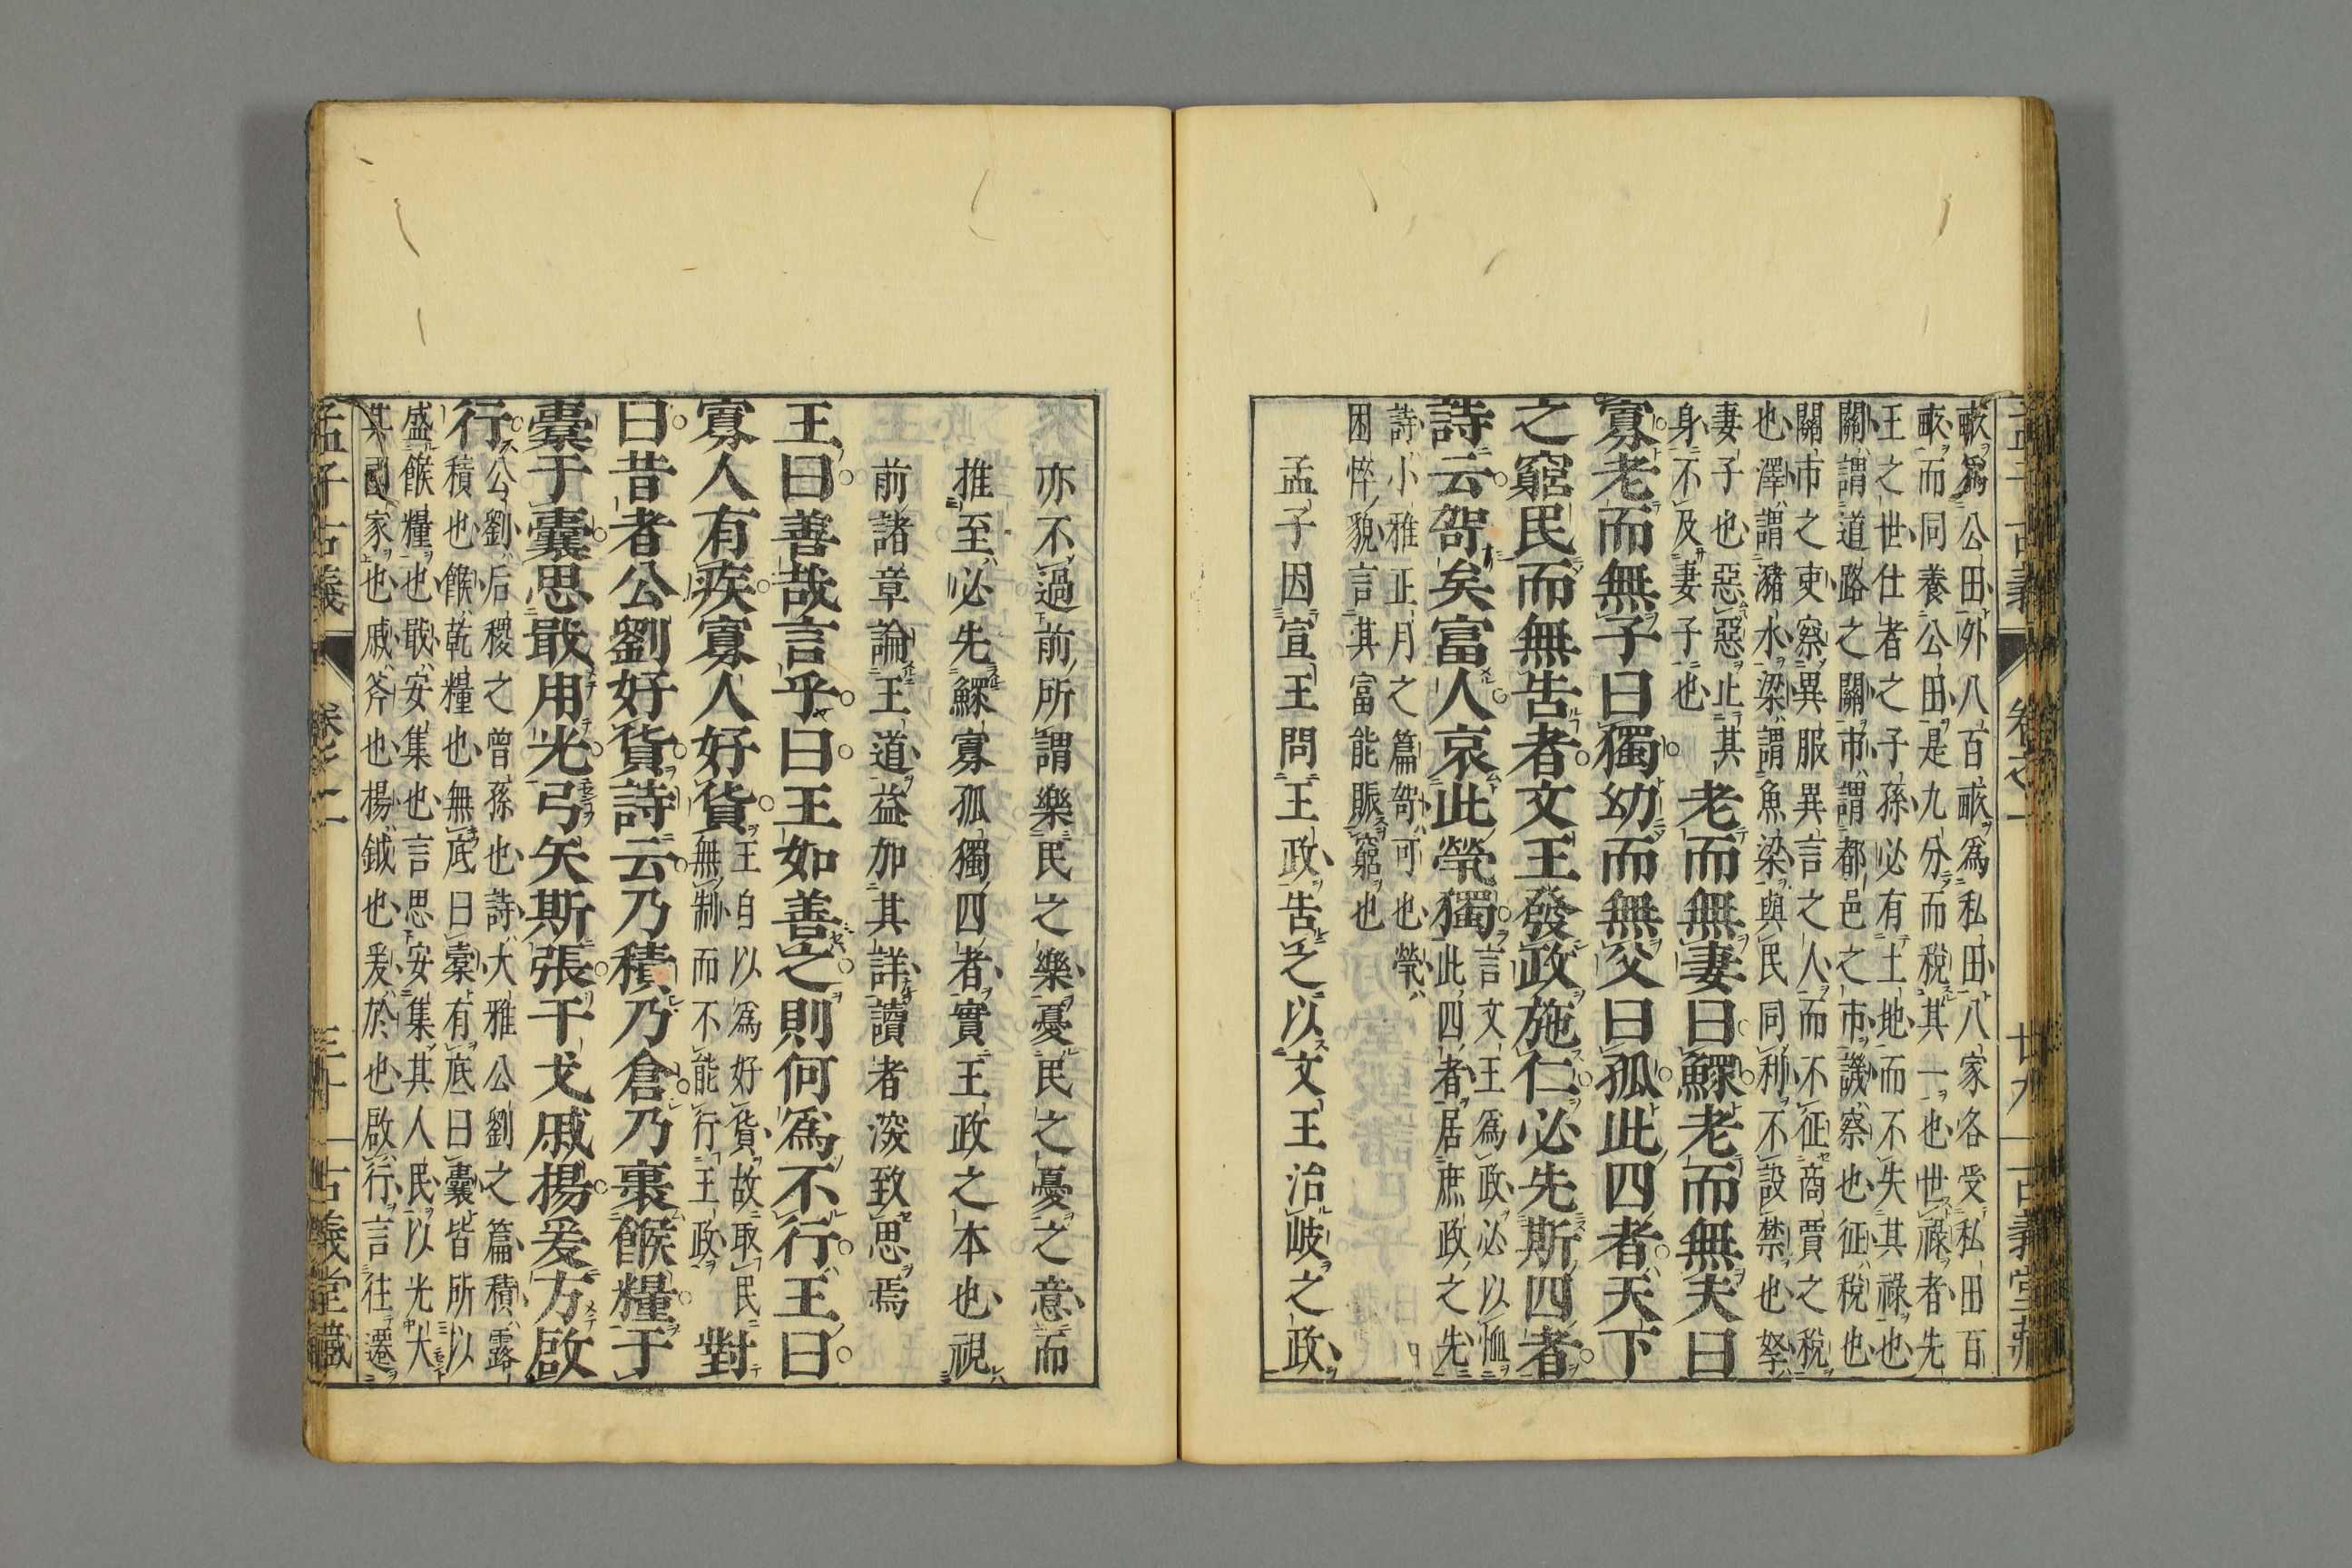 畝爲公田外八百畝爲私田八家各受私田百
畝而同養公田是九分而稅其一也世祿者先
王之世仕者之子孫必有土地而不失其祿也
關謂道路之關市謂都邑之市譏察也征稅也
關市之吏察異服異言之人而不征商賈之稅
也澤謂瀦水梁謂魚梁與民同利不設禁也孥
妻子也惡惡止其
身不及妻子也
老而無妻曰鰥老而無夫曰
寡老而無子曰獨幼而無父曰孤此四者天下
之窮民而無告者文王發政施仁必先斯四者
詩云哿矣富人哀此煢獨
言文王爲政必以恤
此四者居庶政之先
詩小雅正月之篇哿可也煢
困悴貌言其富能賑窮也
孟子因宣王問王政告之以文王治岐之政
亦不過前所謂樂民之樂憂民之憂之意而
推至必先鰥寡孤獨四者實王政之本也視
前諸章論王道益加其詳讀者深致思焉
王曰善哉言乎曰王如善之則何爲不行王曰
寡人有疾寡人好貨
王自以爲好貨故取民
無制而不能行王政
對
曰昔者公劉好貨詩云乃積乃倉乃裹餱糧于
橐于囊思戢用光弓矢斯張干戈戚揚爰方啟
行
公劉后稷之曾孫也詩大雅公劉之篇積露
積也餱乾糧也無底曰橐有底曰囊皆所以
盛餱糧也戢安集也言思安集其人民以光大
其國家也戚斧也揚鉞也爰於也啟行言往遷
孟子古義
卷之一
三十
古義堂藏